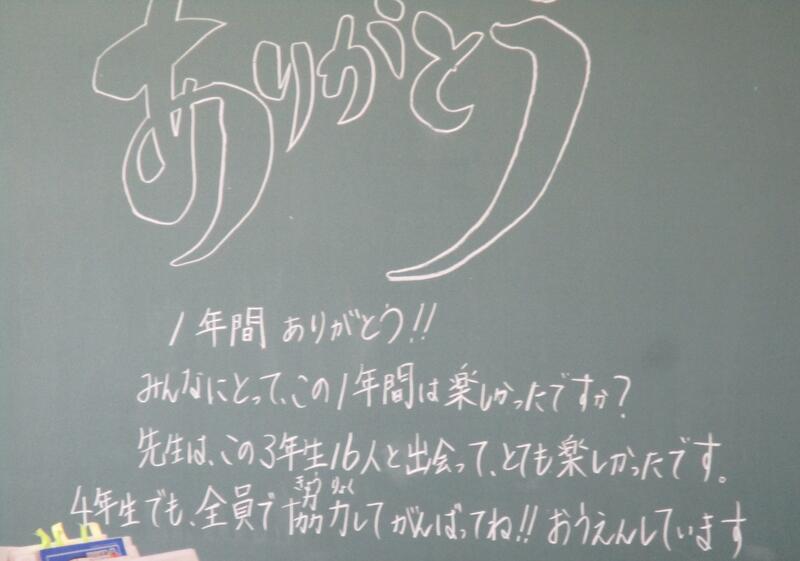 ありがとう
1年間 ありがとう!!
みんなにとって、この1年間は楽しかったですか?
先生は、この3年生16人と出会って、とても楽しかったです。
きょう りょく
4年生でも、全員で協力してがんばってね!! おうえんしています